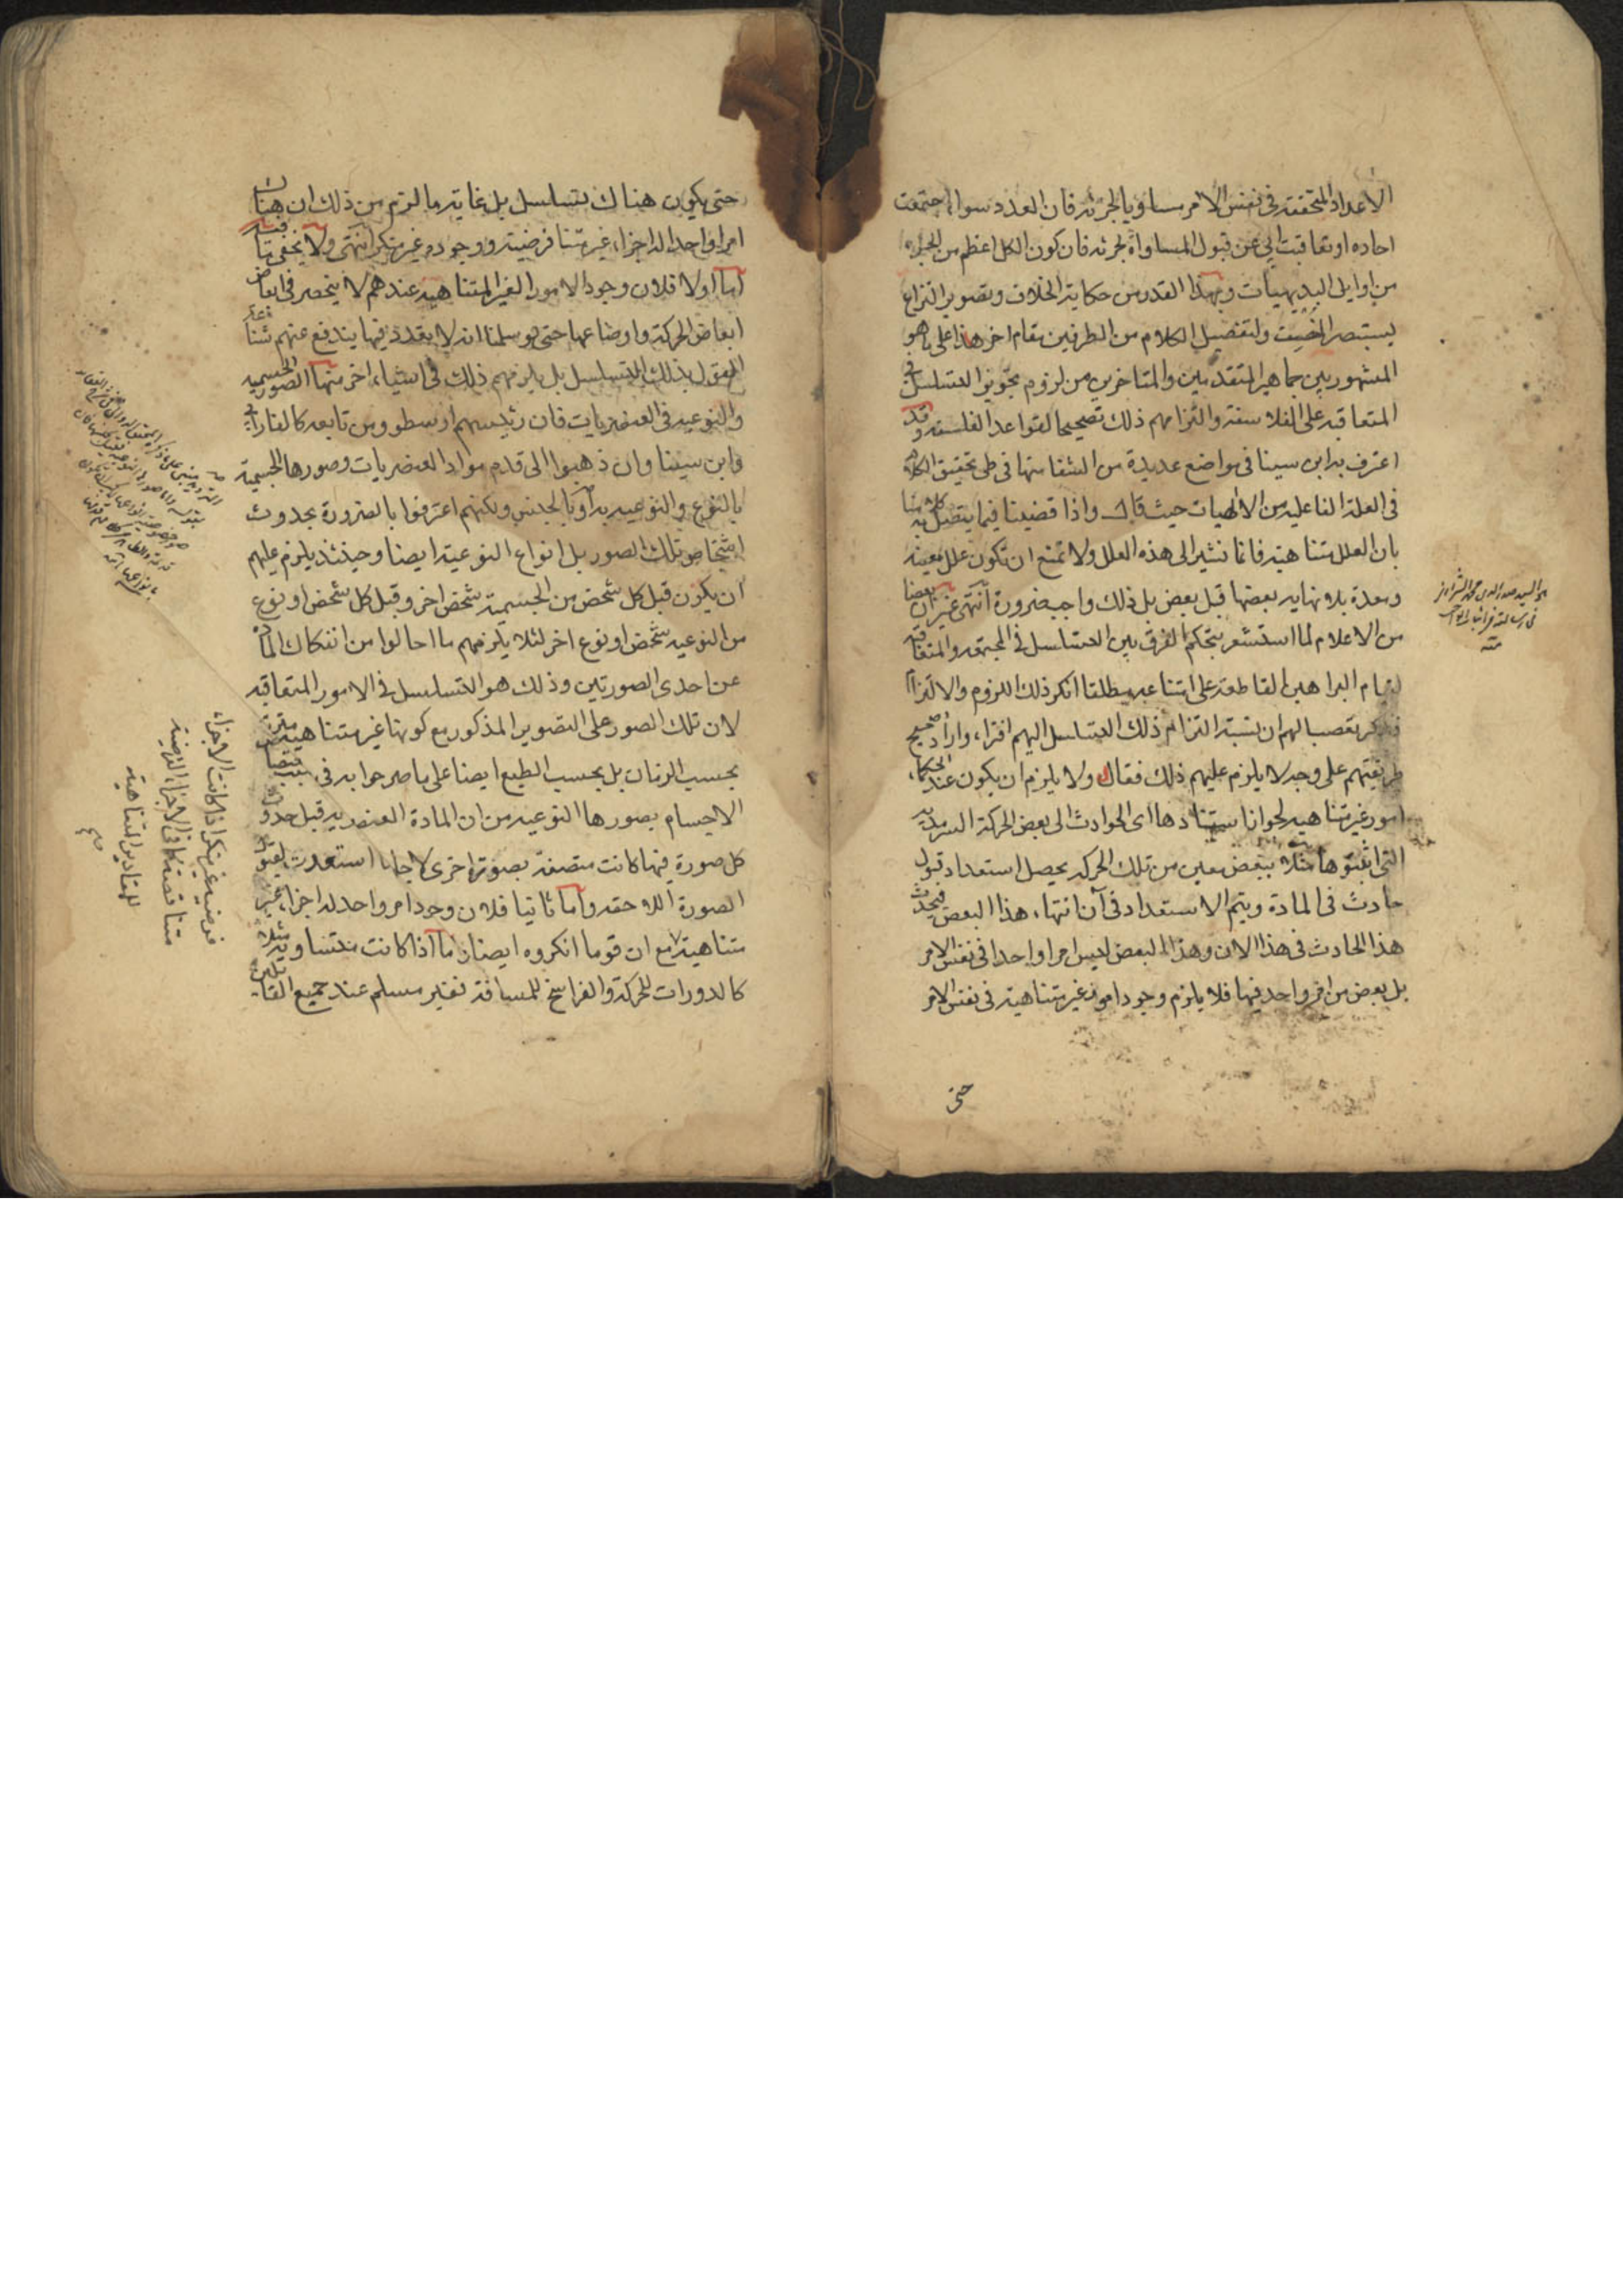 الاعداد المتحققة فى نفس الامر مساويا لجزئه فان العدد سواء اجتمعت
احاده او تعاقبت ابى عن قبول المساواة لجزئه فان كون الكل اعظم من الجزء
من اوايل البديهيات وبهذا القدر من حكاية الخلاف وتصوير النزاع
يستبصر ولتفصيل الكلام من الطرفين مقام اخر هذا على ما هو
المشهور بين جماهير المتقدمين والمتاخرين من لزوم تجويز التسلسل فى
المتعاقبه على الفلاسفة والتزامهم ذلك تصحيحا لقواعد الفلسفه وقد
اعترف به ابن سينا فى مواضع عديدة من الشفا منها فى طى تحقيق الكلام
فى العلة الفاعليه من الالهيات حيث قال واذا قضينا فيما يتصل به كلامنا
بان العلل متناهية فانما نشير الى هذه العلل ولا نمنع ان تكون علل معينه
ومعدة بلا نهايه بعضها قبل بعض بل ذلك واجب ضرورة انتهى غير ان بعضا
من الاعلام لما استشعر بتحكم الفرق بين التسلسل فى المجتمعه والمتعاقبه
لقيام البراهين القاطعة على امتناعه مطلقا انكر ذلك اللزوم والالتزام
فذكر تعصبا لهم ان نسبة التزام ذلك التسلسل اليهم افتراء واراد تصحيح
طريقتهم على وجه لا يلزم عليهم ذلك فقال ولا يلزم ان يكون عند الحكماء
امور غير متناهيه لجواز استنادها اى الحوادث الى بعض الحركة السرمدية
التى اثبتوها مثلا ببعض معين من تلك الحركه يحصل استعداد قبول
حادث فى المادة ويتم الاستعداد فى آن انتهاء هذا البعض فيحدث
هذا الحادث فى هذا الان وهذا البعض ليس امرا واحدا فى نفس الامر
بل بعض من امر واحد فيها فلا يلزم وجود امور غير متناهية فى نفس الامر
حتى
هو السيد صدر الدين محمد الشيرازى
فى رسالته فى اثبات الواجب
منه
حتى يكون هناك تسلسل بل غاية ما لزم من ذلك ان هناك
امرا واحدا له اجزاء غير متناهية فرضية ووجوده غير منكر انتهى ولا يخفى ما فيه
اما اولا فلان وجود الامور الغير المتناهية عندهم لا ينحصر فى ابعاض
ابعاض الحركة واوضاعها حتى لو سلمنا انه لا تعدد فيها يندفع عنهم شناعة
القول بذلك التسلسل بل يلزمهم ذلك فى اشياء اخر منها الصور الجسميه
والنوعيه فى العنصريات فان رئيسهم ارسطو ومن تابعه كالفارابى
وابن سينا وان ذهبوا الى قدم مواد العنصريات وصورها الجسمية
بالنوع والنوعيه او بالجنس ولكنهم اعترفوا بالضرورة بحدوث
اشخاص تلك الصور بل انواع النوعية ايضا وحينئذ يلزم عليهم
ان يكون قبل كل شخص من الجسمية شخص اخر وقبل كل شخص او نوع
من النوعيه شخص او نوع اخر لئلا يلزمهم ما احالوا من انفكاك المادة
عن احدى الصورتين وذلك هو التسلسل فى الامور المتعاقبه
لان تلك الصور على التصوير المذكور مع كونها غير متناهية مترتبة
بحسب الزمان بل بحسب الطبع ايضا على ما صرحوا به فى
الاجسام بصورها النوعيه من ان المادة العنصريه قبل حدوث
كل صورة فيها كانت متصفة بصورة اخرى لاجلها استعدت لقبول
الصورة اللاحقه واما ثانيا فلان وجود امر واحد له اجزاء غير
متناهية مع ان قوما انكروه ايضا اذا كانت متساوية مثلا
كالدورات للحركة والفراسخ للمسافة فغير مسلم عند جميع القائلين
فرضيه غير منكر اذا كانت الاجزاء
متناقصة كما فى الاجزاء الفرضية
للمقادير المتناهية